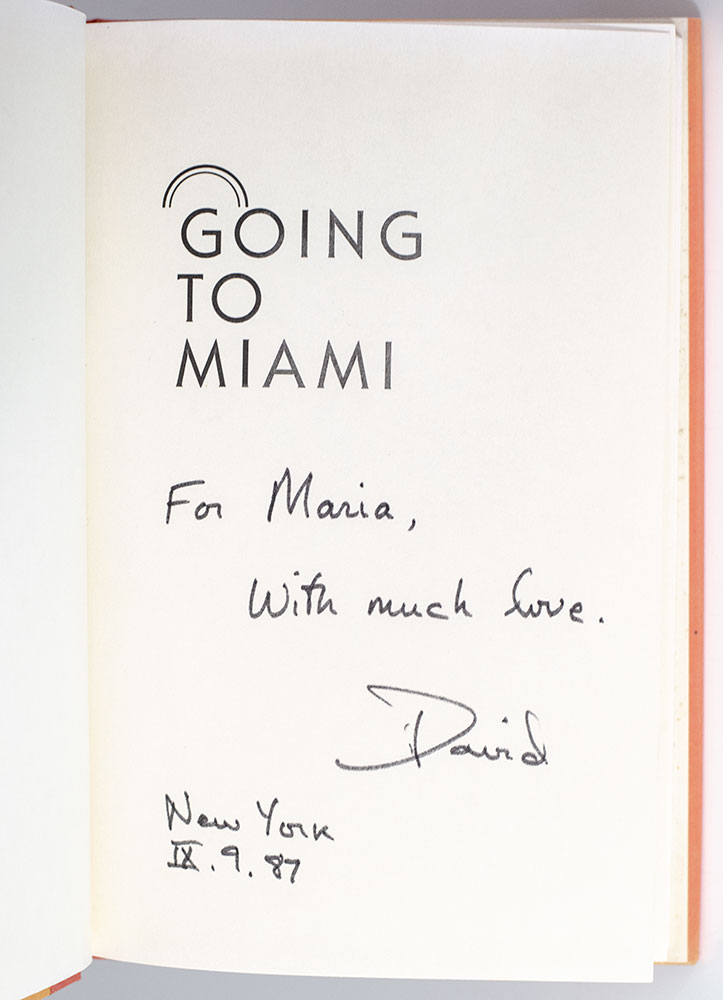 GOING
TO
MIAMI
For Maria,
With much love.
David
New York
IX.9.87